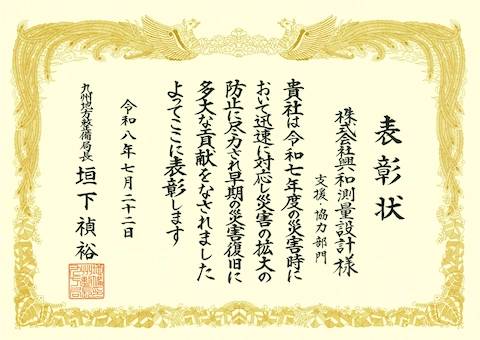 表彰状
株式会社興和測量設計様
支援・協力部門
貴社は令和七年度の災害時に
おいて迅速に対応し災害の拡大の
防止に尽力され早期の災害復旧に
多大な貢献をなされました
よってここに表彰します
令和八年七月二十二日
九州地方整備局長
垣下禎裕